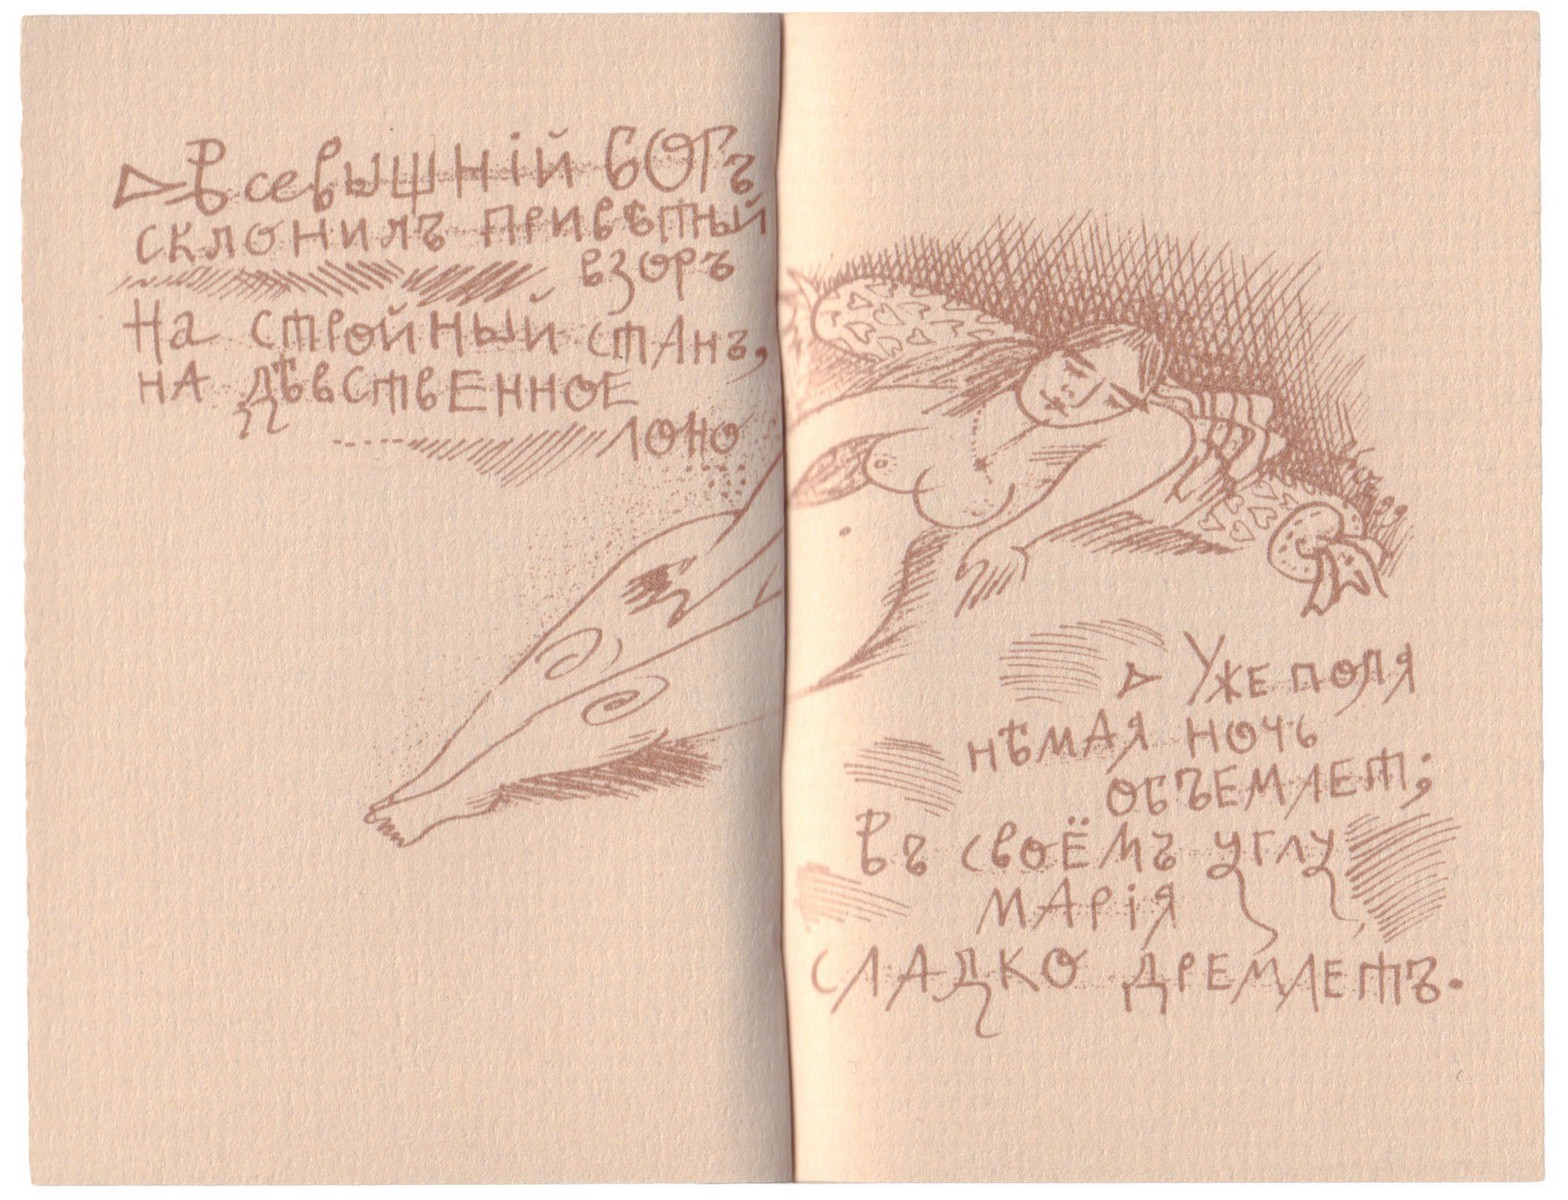 Всевышній богъ
склонилъ привѣтный
взоръ
На стройный станъ,
на дѣвственное
лоно
Уже поля
нѣмая ночь
объемлет;
Въ своёмъ углу
Марія
сладко дремлетъ.